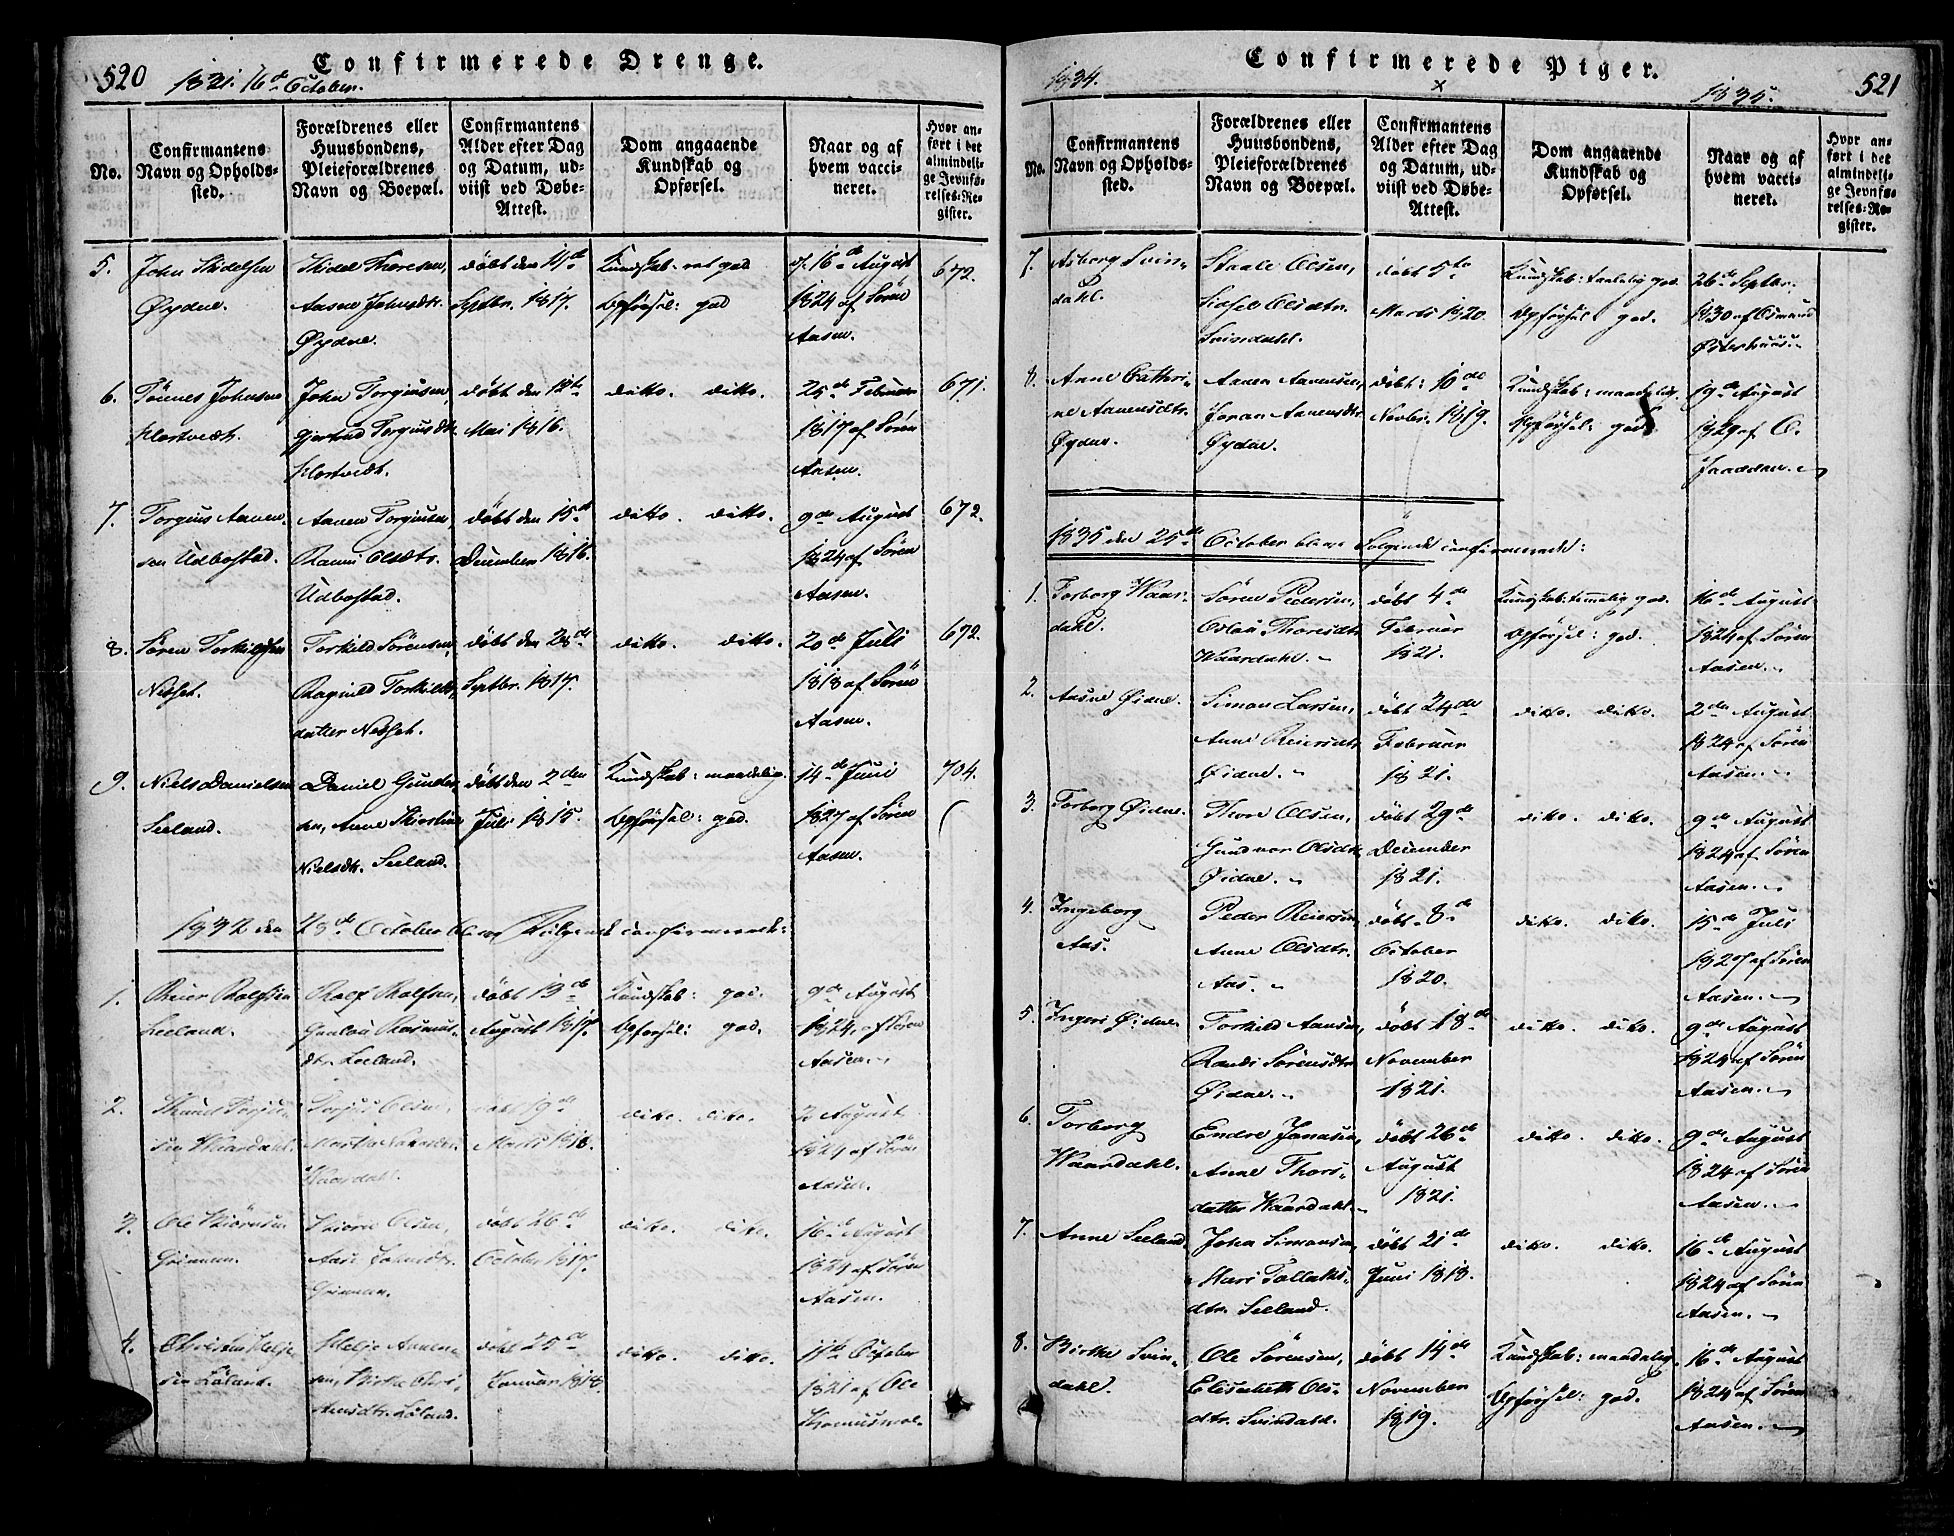 520
Confirmerede Drenge.
1831. 16de October.
No.
Confirmantens Navn og Opholdssted.
Forældrenes eller Huusbondens, Pleieforældrenes Navn og Boepæl.
Confirmantens Alder efter Dag og Datum, udviist ved Døbe-Attest.
Dom angaaende Kundskab og Opførsel.
Naar og af hvem vaccineret.
Hvor anført i det almindelige Jevnførelses-Register.
5. John
Øydne.
Thoresen,
Aasne Johnsdtr.
Øydne.
døbt den 14de
Septbr. 1817.
Kundskab: ret god
Opførsel: god
d. 16de August
1824 af Sören
Aasen.
672.
6. Tönnes Johnsen
John Torgiusen
Gjertrud Torgiusdtr.
døbt den 12te
Mai 1816.
ditto. ditto.
25de Februar
1817 af Sören
Aasen.
671.
7. Torgius Aanen-
sen Udbostad.
Aanen Torgiusen,
Ranni Olsdtr.
Udbostad.
døbt den 15de
December 1816.
ditto. ditto.
9de August
1824 af Sören
Aasen.
672.
8. Sören Torkildsen
Nebset.
Torkild Sörensen,
Ragnild Torkilds-
datter Nebset.
døbt den 28de
Septbr. 1817.
ditto. ditto.
20de Juli
1818 af Sören
Aasen.
672.
9. Niels Danielsen
Seeland.
Daniel Gunder-
sen, Anne Kirstine
Nielsdtr. Seeland.
døbt den 2den
Juli 1815.
Kundskab: maadelig.
Opförsel: god.
14de Juni
1827 af Sören
Aasen.
704.
1832 den 28de October bleve Fölgende confirmerede:
1. Reier Rolfsen
Leeland.
Rolf Rolfsen,
Gunlou Rasmus-
dtr. Leeland.
døbt 19de
August 1817.
Kundskab: god.
Opförsel: god.
9de August
1824 af Sören
Aasen.
2. Torju-
sen Waardahl.
Torjus Olsen,
Waardahl.
døbt 19de
Marts 1818.
ditto. ditto.
2 August
1824 af Sören
Aasen.
3. Ole
Olsen,
Aase Johnsdtr.
døbt 26de
October 1817.
ditto. ditto.
16de August
1824 af Sören
Aasen.
4. Christen Helje-
sen Löland.
Helje Aanen-
sen, Birthe Chri-
stensdtr. Löland.
døbt 25de
Januar 1818.
ditto. ditto.
11te October
1821 af Ole
1834.
Confirmerede Piger.
x
1835.
521
No.
Confirmantens Navn og Opholdssted.
Forældrenes eller Huusbondens, Pleieforældrenes Navn og Boepæl.
Confirmantens Alder efter Dag og Datum, udviist ved Døbe-Attest.
Dom angaaende Kundskab og Opførsel.
Naar og af hvem vaccineret.
Hvor anført i det almindelige Jevnførelses-Register.
7. Asborg Svin-
dahl.
Staale Olsen,
Sidsel Olsdtr.
Svindahl.
døbt 5te
Marts 1820.
Kundskab: taalelig god.
Opförsel god.
26de Septbr.
1830 af Osmund
Østerhuus.
8. Anne Cathri-
ne Aanensdtr.
Øydne.
Aanen Aanensen,
Joran Aanensdtr.
Øydne.
døbt: 10de
Novbr. 1819.
Kundskab: maadelig.
Opförsel: god
19de August
1829 af O.
1835 den 25de October bleve Følgende confirmerede:
1. Torborg Waar-
dahl.
Sören Pedersen,
Thoresdtr.
Waardahl.
døbt 4de
Februar
1821.
Kundskab: temmelig god.
Opförsel: god.
16de August
1824 af Sören
Aasen.
2. Aasne Øidne.
Simon Larsen,
Anne Reiersdtr.
Øidne.
døbt 24de
Februar
1821.
ditto. ditto.
2den August
1824 af Sören
Aasen.
3. Torborg Øidne.
Thore Olsen,
Gundvor Olsdtr.
Øidne.
døbt 29de
December
1821.
ditto. ditto.
9de August
1824 af Sören
Aasen.
4. Ingeborg
Aas.
Peder Reiersen,
Anne Olsdtr.
Aas.
døbt 8de
October
1820.
ditto. ditto.
15de Juli
1827 af Sören
Aasen.
5. Ingeri Øidne
Torkild Aansen,
Randi Sörensdtr.
Øidne.
døbt 18de
November
1821.
ditto. ditto.
9de August
1824 af Sören
Aasen.
6. Torborg
Waardahl.
Endre Jonasen,
Anne Thors-
datter Waardahl.
døbt 26de
August
1821.
ditto. ditto.
9de August
1824 af Sören
Aasen.
7. Anne Seeland.
John Simonsen,
Mari Tollaks-
dtr. Seeland.
døbt 21de
Juni 1818.
ditto. ditto.
16de August
1824 af Sören
Aasen.
8. Birthe Svin-
dahl.
Ole Sörensen,
Elisabeth Ols-
dtr. Svindahl.
døbt 14de
November
1819.
Kundskab: maadelig
Opförsel: god.
16de August
1824 af Sören
Aasen.